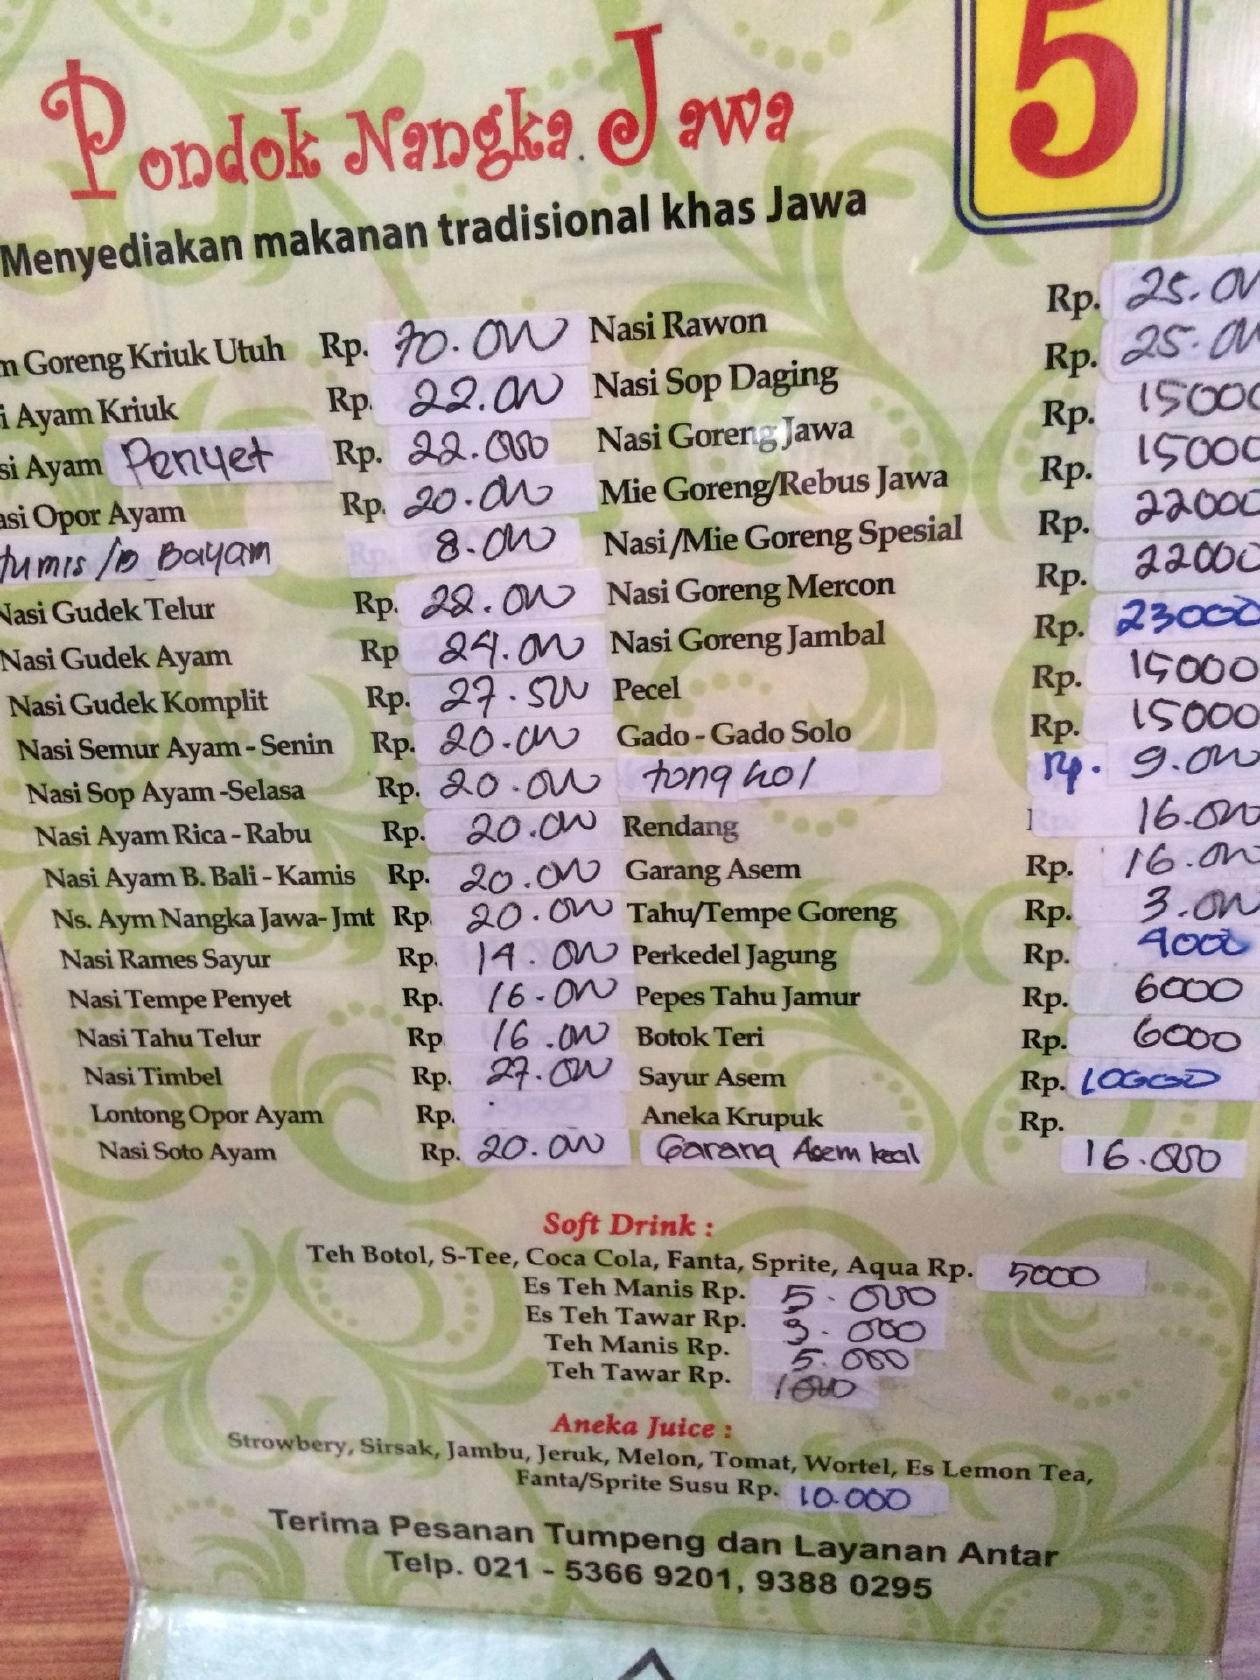 5
Pondok Nangka Jawa
Menyediakan makanan tradisional khas Jawa
Goreng Kriuk Utuh Rp. 70.000
Ayam Kriuk Rp. 22.000
Ayam Penyet Rp. 22.000
Opor Ayam Rp. 20.000
Tumis /B Bayam 8.000
Nasi Gudek Telur Rp. 22.000
Nasi Gudek Ayam Rp 24.000
Nasi Gudek Komplit Rp. 27.500
Nasi Semur Ayam - Senin Rp. 20.000
Nasi Sop Ayam -Selasa Rp. 20.000
Nasi Ayam Rica - Rabu Rp. 20.000
Nasi Ayam B. Bali - Kamis Rp. 20.000
Ns. Aym Nangka Jawa- Jmt Rp. 20.000
Nasi Rames Sayur Rp. 14.000
Nasi Tempe Penyet Rp. 16.000
Nasi Tahu Telur Rp 16.000
Nasi Timbel Rp. 27.000
Lontong Opor Ayam Rp.
Nasi Soto Ayam Rp. 20.000
Nasi Rawon Rp. 25.000
Nasi Sop Daging Rp. 25.000
Nasi Goreng Jawa Rp. 15000
Mie Goreng/Rebus Jawa Rp. 15000
Nasi/Mie Goreng Spesial Rp. 22000
Nasi Goreng Mercon Rp. 22000
Nasi Goreng Jambal Rp. 23000
Pecel Rp. 15000
Gado - Gado Solo Rp. 15000
tongkol Rp. 9.000
Rendang 16.000
Garang Asem Rp. 16.000
Tahu/Tempe Goreng Rp. 3.000
Perkedel Jagung Rp. 4000
Pepes Tahu Jamur Rp. 6000
Botok Teri Rp. 6000
Sayur Asem Rp. 10000
Aneka Krupuk Rp.
Garang Asem 16.000
Soft Drink :
Teh Botol, S-Tee, Coca Cola, Fanta, Sprite, Aqua Rp. 5000
Es Teh Manis Rp. 5.000
Es Teh Tawar Rp. 3.000
Teh Manis Rp. 5.000
Teh Tawar Rp. 1000
Aneka Juice :
Strowbery, Sirsak, Jambu, Jeruk, Melon, Tomat, Wortel, Es Lemon Tea,
Fanta/Sprite Susu Rp. 10.000
Terima Pesanan Tumpeng dan Layanan Antar
Telp. 021 - 5366 9201, 9388 0295